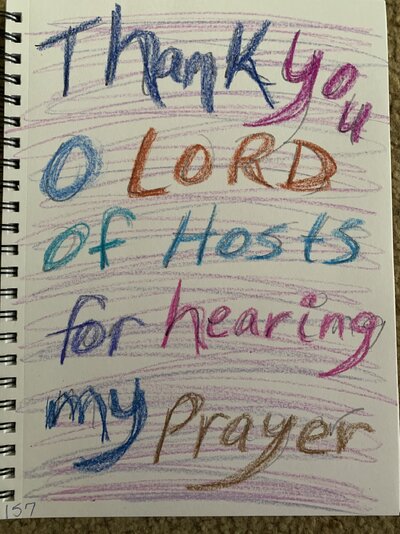 Thank you
O LORD
of Hosts
for hearing
my Prayer
157